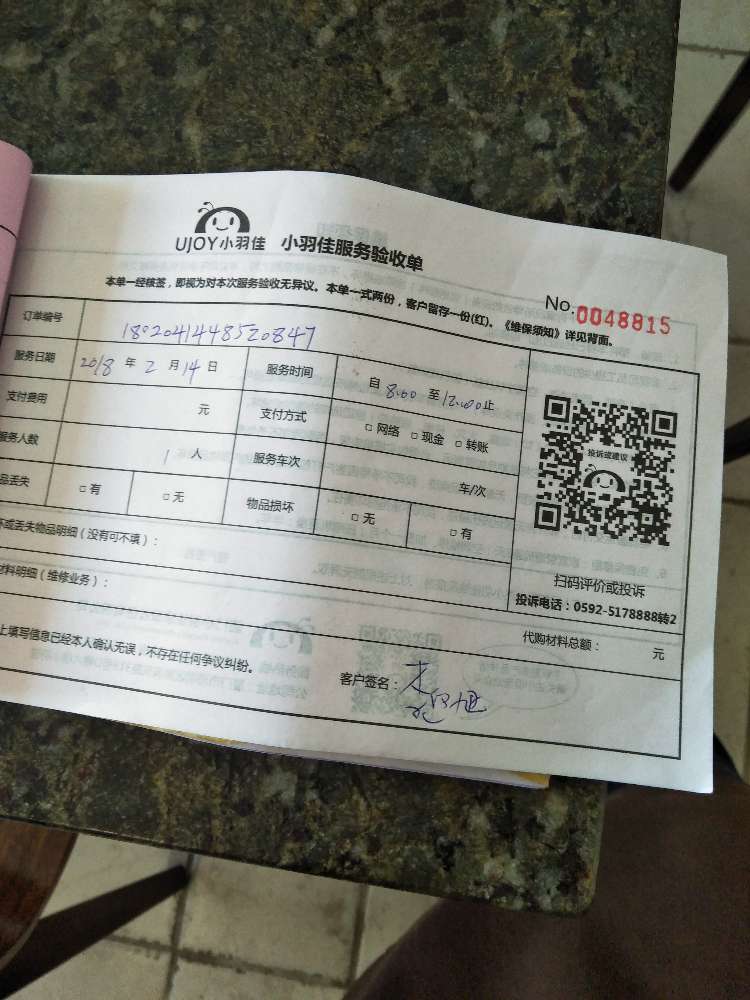 UJOY小羽佳 小羽佳服务验收单
No.0048815
本单一经核签，即视为对本次服务验收无异议。本单一式两份，客户留存一份(红)。《维保须知》详见背面。
订单编号 1802041448520847
服务日期 2018 年 2 月 14 日 服务时间 自 8:00 至 12:00 止
支付费用 元 支付方式 □ 网络 □ 现金 □ 转账
服务人数 1 人 服务车次 车/次
品丢失 □ 有 □ 无 物品损坏 □ 无 □ 有
投诉或建议
扫码评价或投诉
投诉电话：0592-5178888转2
坏或丢失物品明细（没有可不填）：
材料明细（维修业务）：
代购材料总额： 元
上填写信息已经本人确认无误，不存在任何争议纠纷。 客户签名：